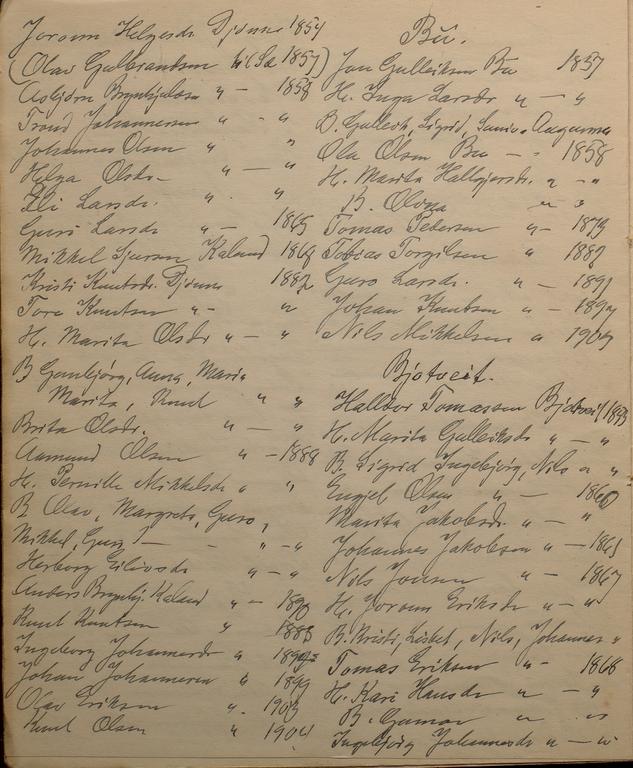 Joronn Helgesdr Djønne 1857
(Olav Gulbrandsen 1857)
Asbjørn Brynhjulsen " — 1858
Trond Johannessen " - "
Johannes Olsen " "
Helga Olsdr. " — "
Eli Larsdr. " "
Guro Larsdr " — 1865
Mikkel Sjursen Kaland 1869
Kristi Knutsdr. Djønne 1882
Tore Knutsen " - "
H. Marita Olsdr " — "
B Gunbjørg, Anna, Maria
Marita, Knud " "
Brita Olsdr. " — "
Aamund Olsen " — 1888
H. Pernille Mikkelsdr " "
B Olav, Margreta, Guro,
Mikkel, Guro — " — "
Herborg Eilivsdr " — "
Anders Brynhj. Kaland " — 1890
Knut Knutsen " 1888
Ingeborg Johannesdr "
Johan Johannesen " 1899
Olav Eriksen " 1903
Knut Olsen " 1904
Bu.
Jon Gulleiksen Bu 1857
H. Inga Larsdr " — "
B. Gulleik, Sigrid, Aagamme
Ola Olsen Bu — - 1858
H. Marita Hallgjersdr. " - "
B. Olvna " "
Tomas Pedersen " - 1879
Tobias Torgilsen " 1882
Guro Larsdr. " — 1891
Johan Knutsen " — 1892
Nils Mikkelsen " 1903
Bjotveit.
Halldor Tomassen Bjotveit
H. Marita Gulleiksdr " — "
B. Sigrid Ingebjørg, Nils " "
Engjel Olsen " — 1860
Marita Jakobsdr. " — "
Johannes Jakobsen " — 1861
Nils Jonsen " — 1867
H. Joronn Eriksdr " — "
B. Kristi, Lisbet, Nils, Johannes "
Tomas Eriksen " - 1868
H. Kari Hansdr " — "
B. Gunnar " "
Ingebjørg Johannesdr " — "